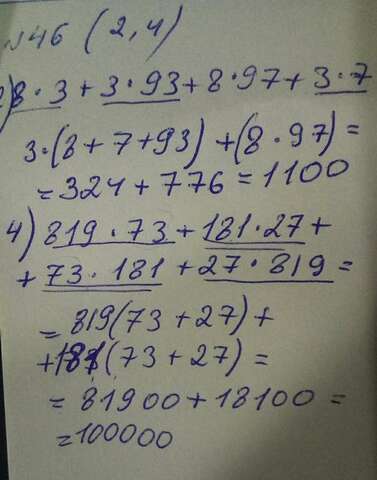 №46 (2,4)
2) 8·3 + 3·93 + 8·97 + 3·7
3·(8 + 7 + 93) + (8·97) =
= 324 + 776 = 1100
4) 819·73 + 181·27 +
+ 73·181 + 27·819 =
= 819(73 + 27) +
+ 181(73 + 27) =
= 81900 + 18100 =
= 100000